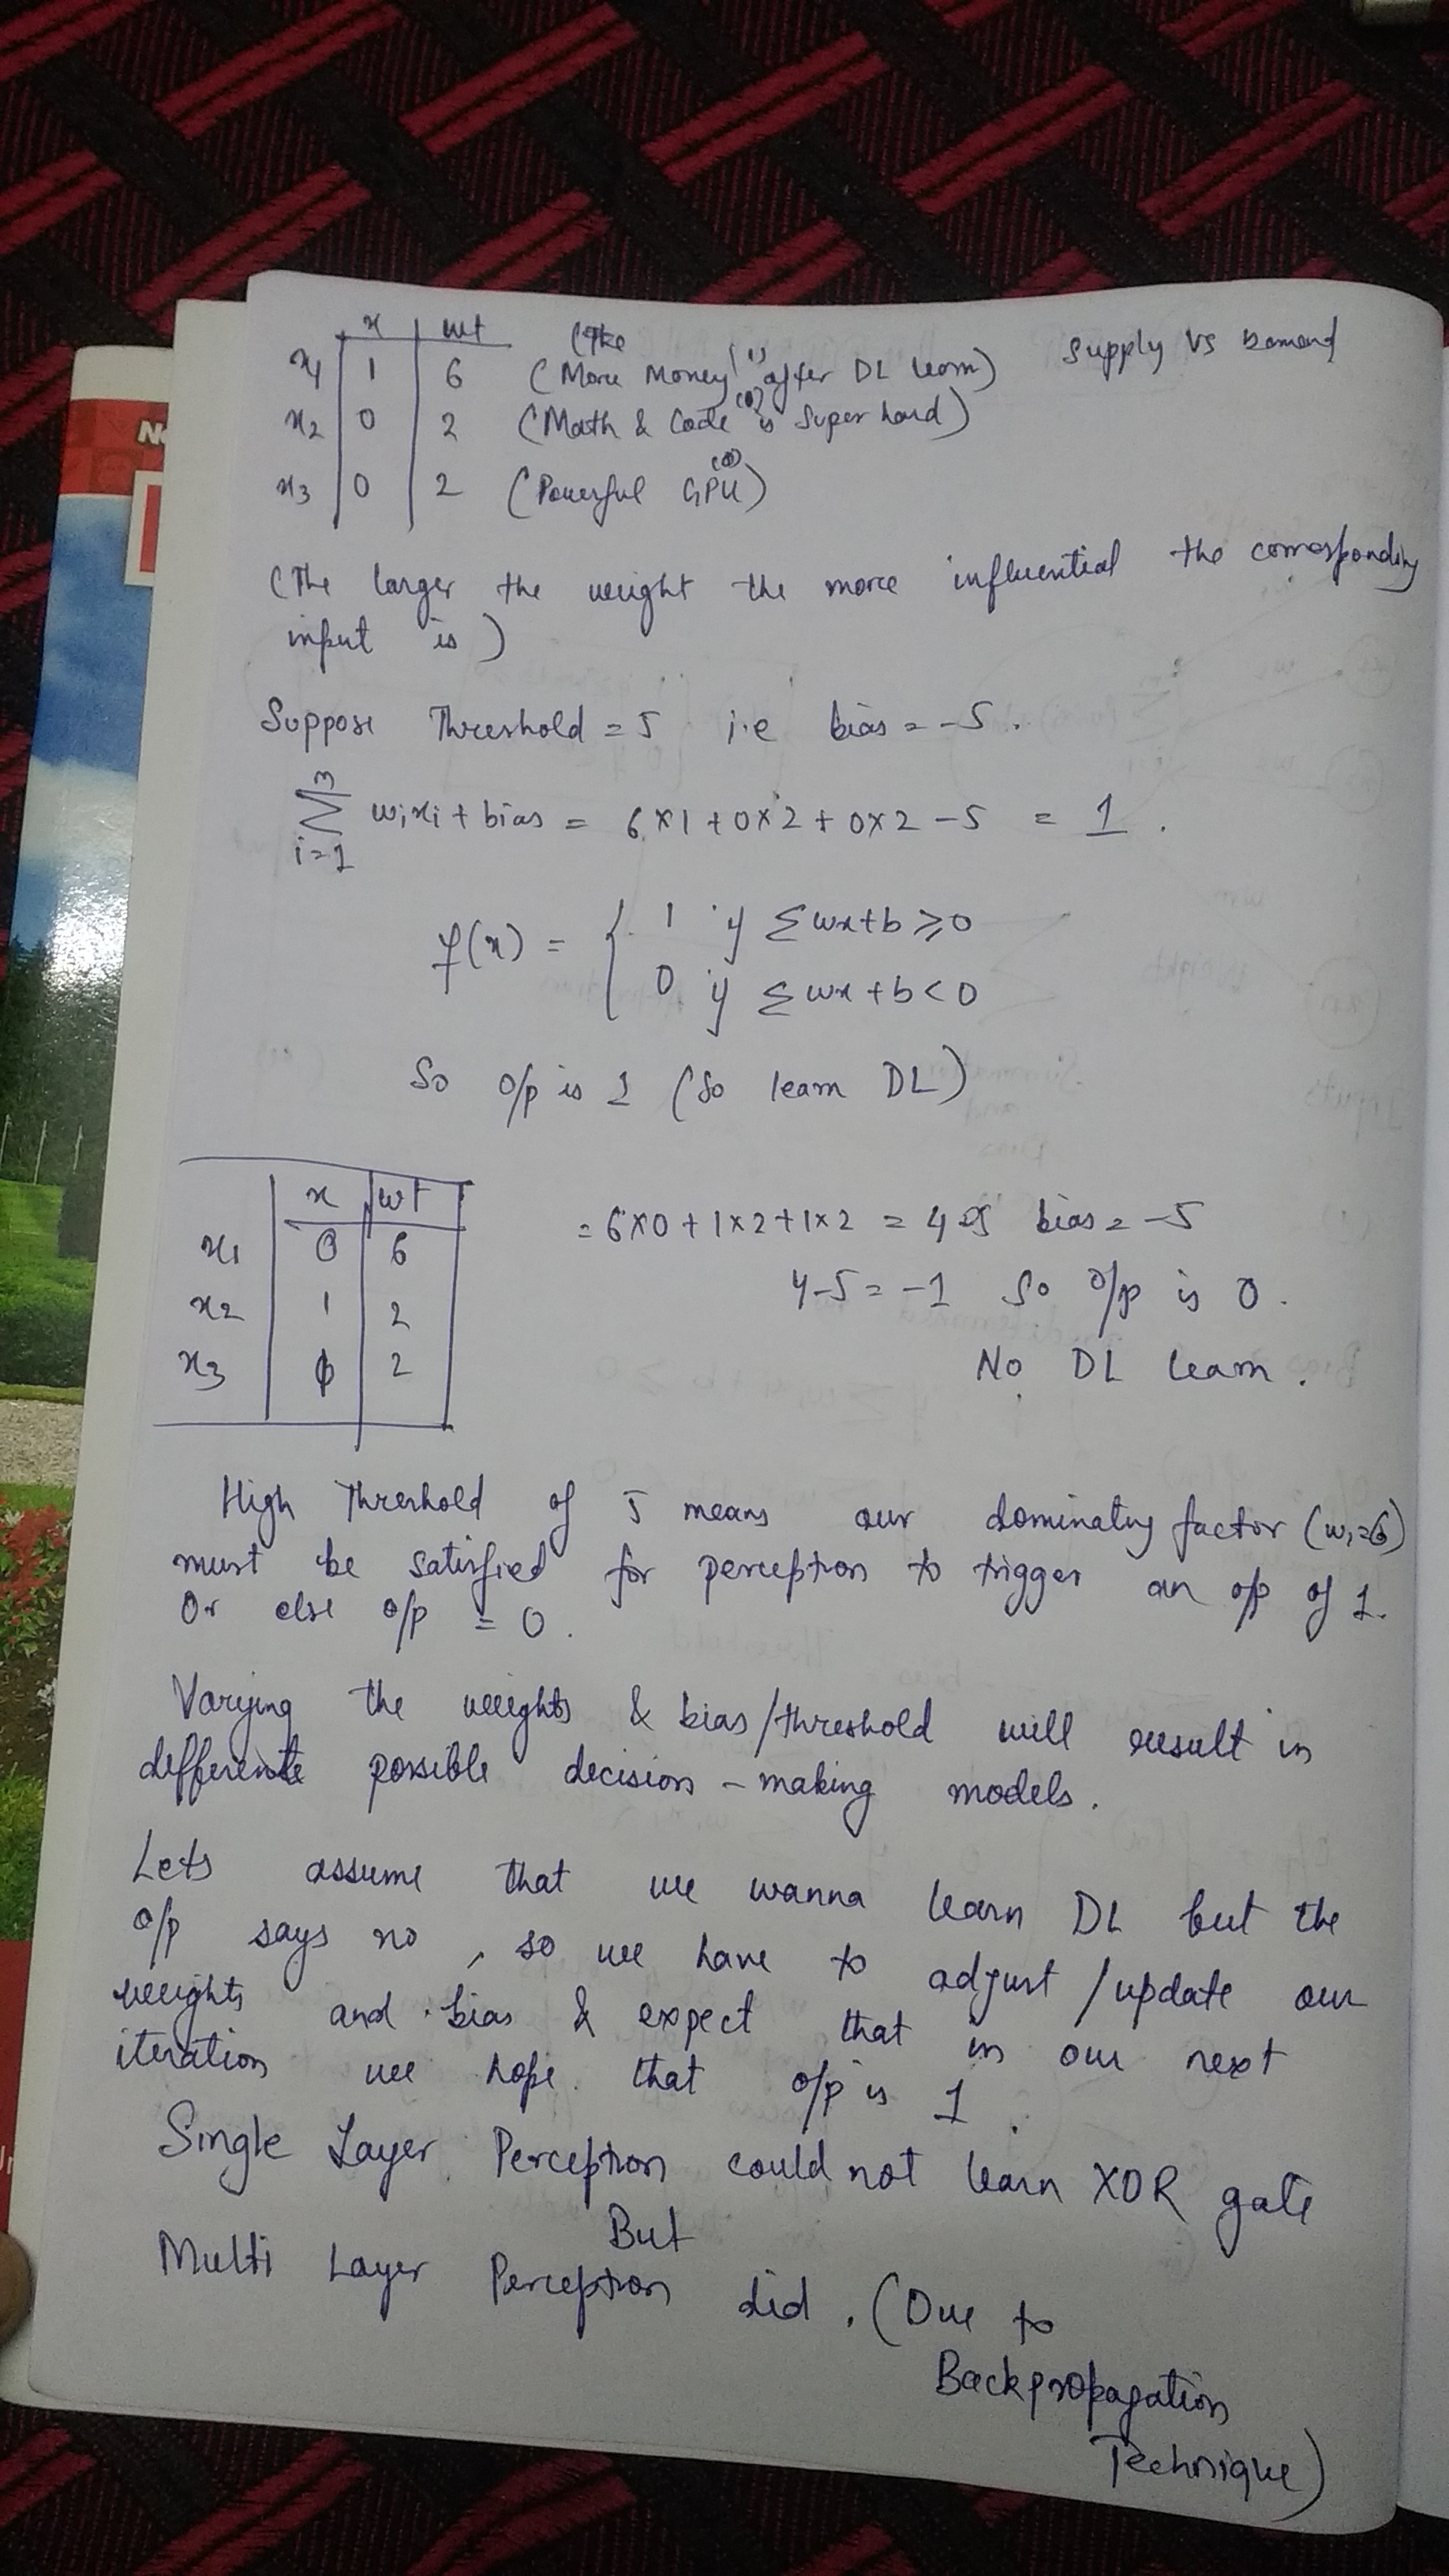 x wt (The
x1 1 6 (More Money (1) after DL learn) Supply Vs Demand
x2 0 2 (Math & Code (0) is Super hard)
x3 0 2 (Powerful GPU (0))
(The larger the weight the more influential the corresponding
input is)
Suppose Threshold = 5 i.e bias = -5.
3
∑ wixi + bias = 6x1 + 0x2 + 0x2 - 5 = 1.
i=1
f(x) = { 1 if ∑wx+b ≥ 0
0 if ∑wx+b < 0
So o/p is 1 (So learn DL)
x wt
x1 0 6 = 6x0 + 1x2 + 1x2 = 4 bias = -5
x2 1 2 4-5 = -1 So o/p is 0.
x3 2 No DL learn.
High Threshold of 5 means our dominating factor (w1=6)
must be satisfied for perceptron to trigger an o/p of 1.
Or else o/p = 0.
Varying the weights & bias/threshold will result in
different possible decision-making models.
Lets assume that we wanna learn DL but the
o/p says no, so we have to adjust/update our
weights and bias & expect that in our next
iteration we hope that o/p is 1.
Single Layer Perceptron could not learn XOR gate
But
Multi Layer Perceptron did. (Due to
Backpropagation
Technique)